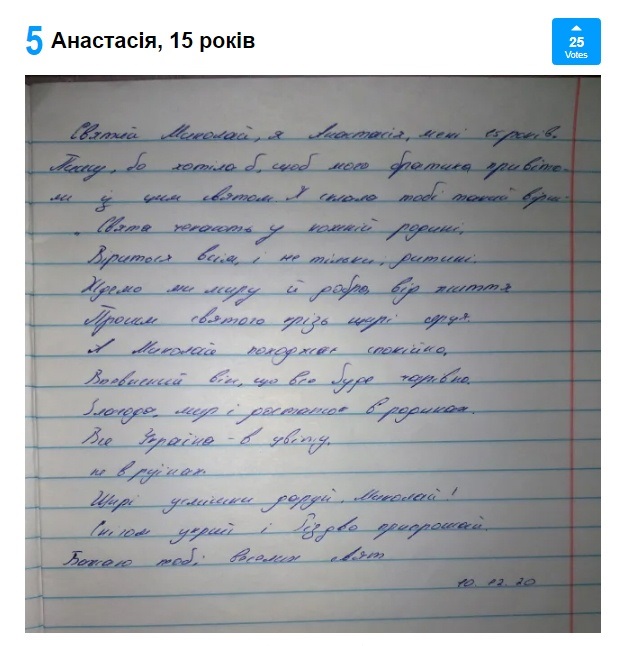 5 Анастасія, 15 років
25
Votes
Святий Миколай, я Анастасія, мені 15 років.
Пишу, бо хотіла б, щоб мого братика привіта-
ли із цим святом. Я склала тобі такий вірш.
Свята чекають у кожній родині,
Віриться всім, і не тільки дитині.
Ждемо ми миру й добра від життя
Просим святого крізь щирі серця.
А Миколай походжає спокійно,
Впевнений він, що все буде чарівно.
Злагода, мир і достаток в родинах.
Вся Україна - в цвіту,
не в руїнах
Щирі усмішки даруй, Миколай!
Снігом укрий і Різдво присрошай.
Бажаю тобі веселих свят
10.12.20